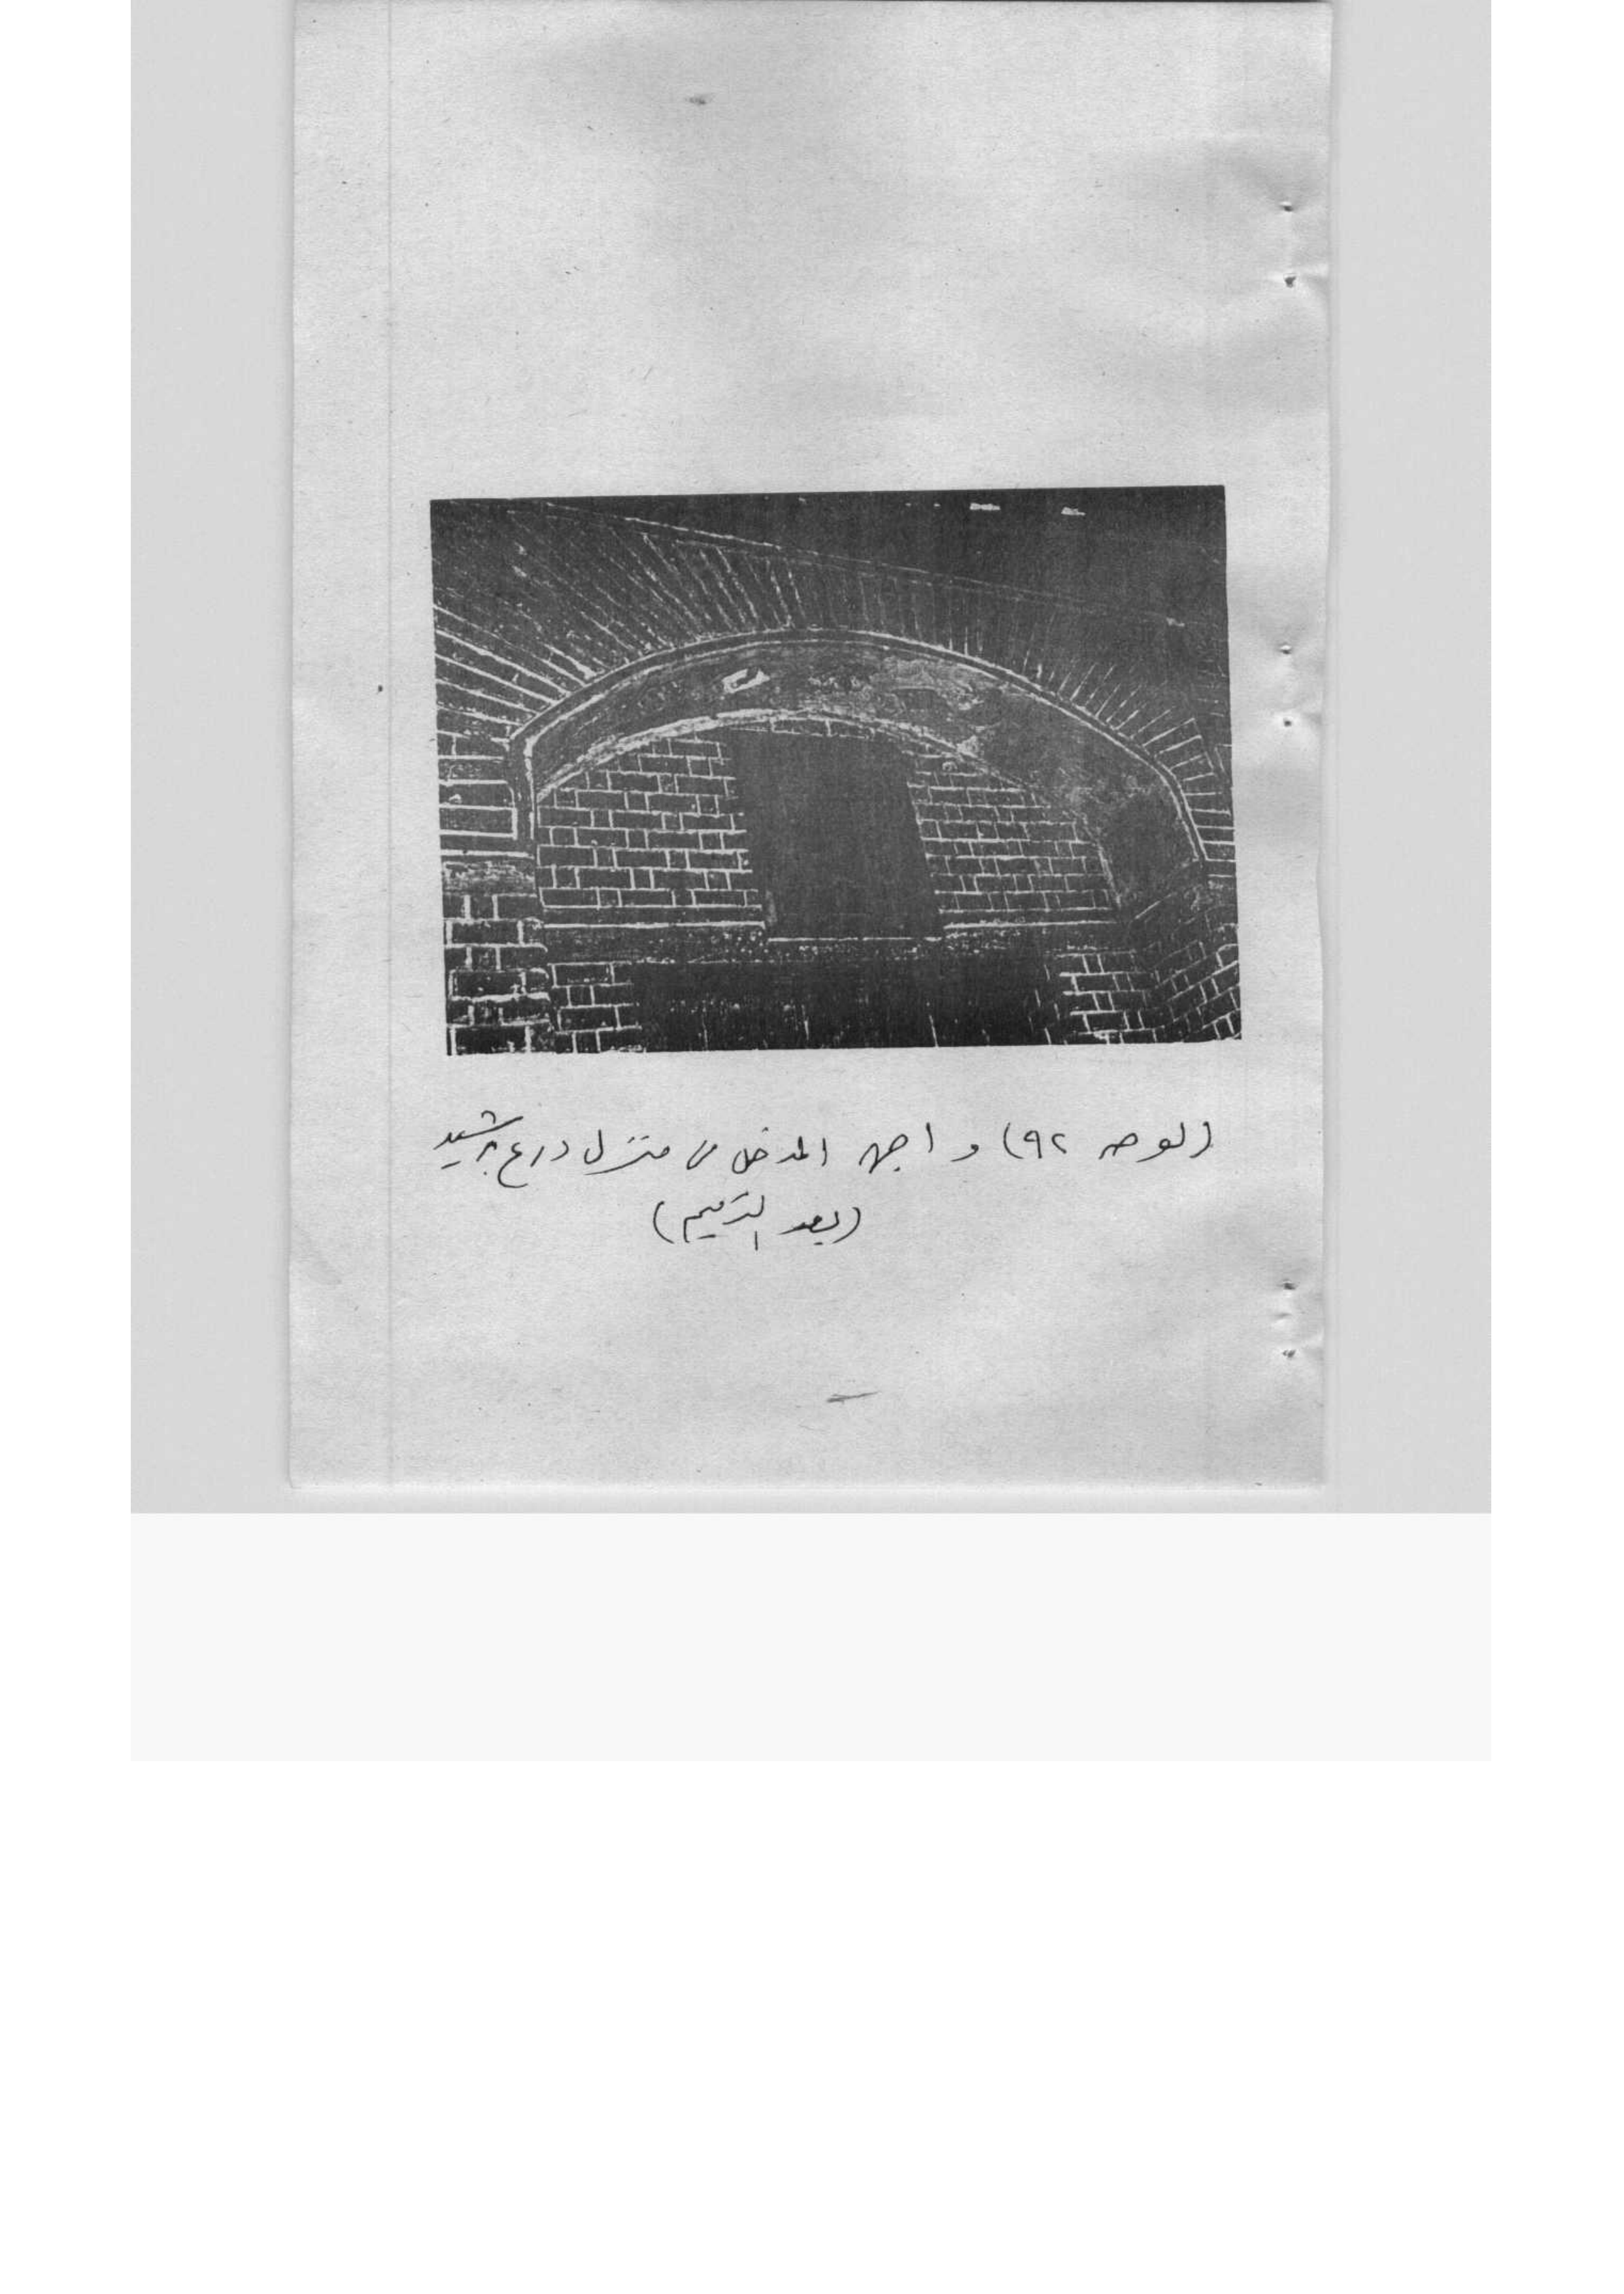 (لوحه ٩٢) واجهه المدخل من منزل درع برشيد
(بعد الترميم)